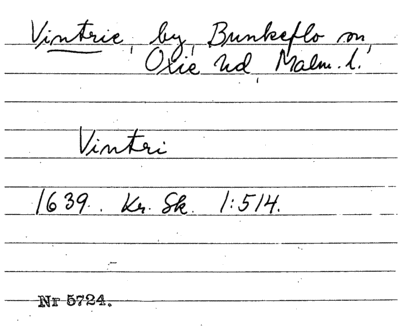 Vintrie, by, Bunkeflo sn,
Oxie hd, Malm. l.
Vintri
1639. Kr. Sk. 1:514.
Nr 5724.